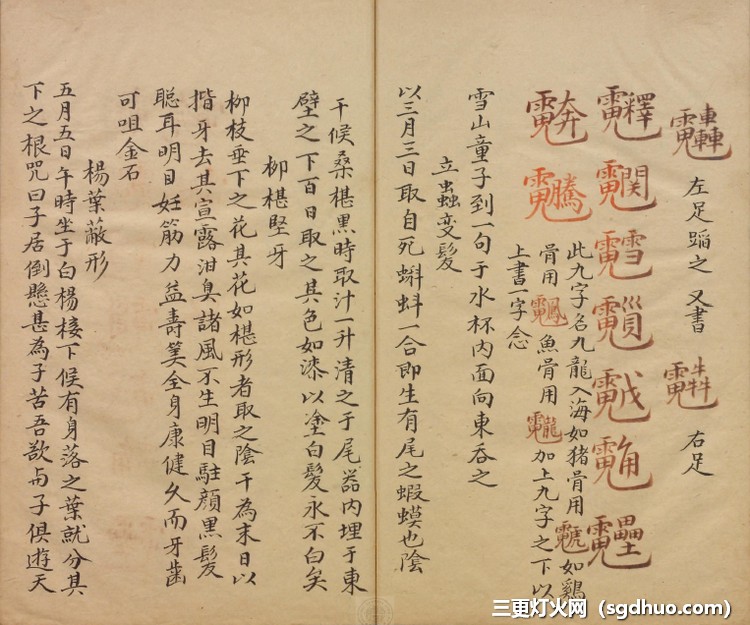 左足蹈之 又書 右足
此九字名九龍入海如猪骨用 如鷄
骨用 魚骨用 加上九字之下以
上書一字念
雪山童子到一句于水杯内面向東吞之
立蟲变髪
以三月三日取自死蝌蚪一合即生有尾之蝦蟆也陰
干候桑椹黑時取汁一升清之于尾器内埋于東
壁之下百日取之其色如漆以塗白髮永不白矣
柳椹堅牙
柳枝垂下之花其花如椹形者取之陰干為末日以
揩牙去其宣露泔臭諸風不生明目駐顔黑髮
聪耳明目妊筋力益壽筭全身康健久而牙齒
可咀金石
楊葉蔽形
五月五日午時坐于白楊樓下候有身落之葉就分其
下之根咒曰子居倒懸甚為子苦吾欲与子俱遊天
三更灯火网（sgdhuo.com）